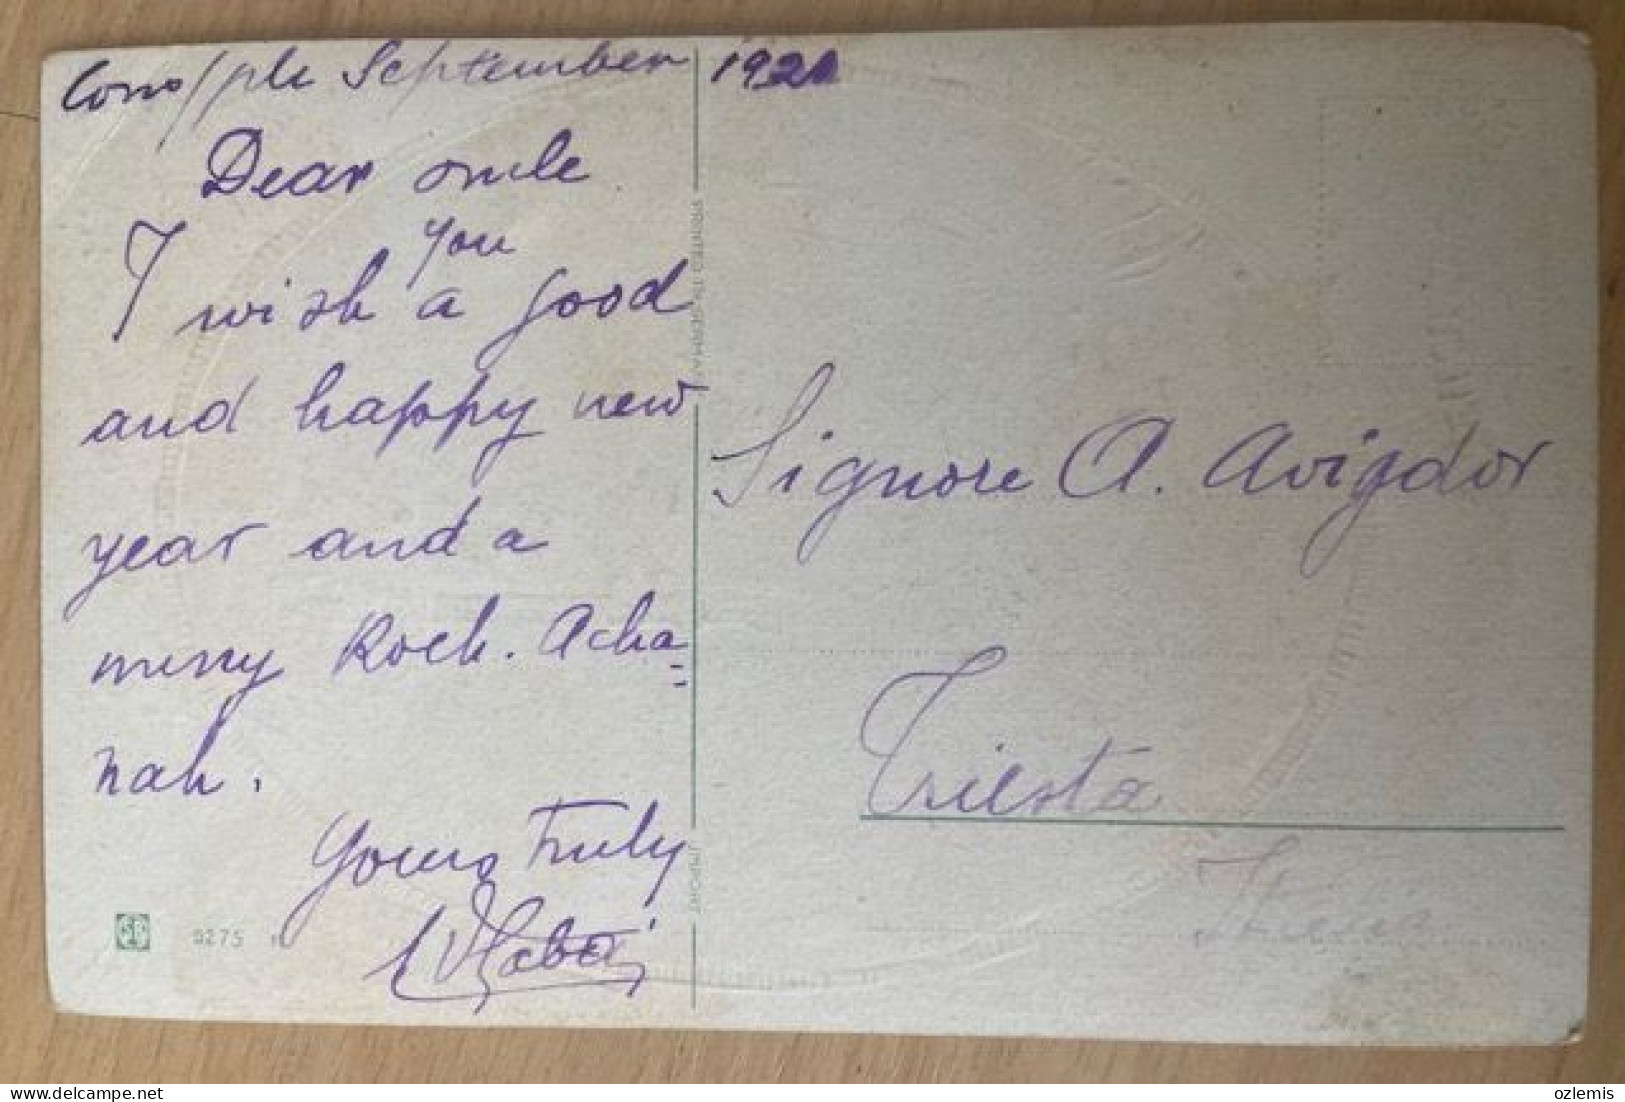 Cons/ple September 1921
Dear oncle
you
I wish a good
and happy new
year and a
merry Roch. Acha=
nah.
Yours Truly
Signore A. Avigdor
Triesta
PRINTED IN GERMANY
IMPORTÉ
9275
ozlemis